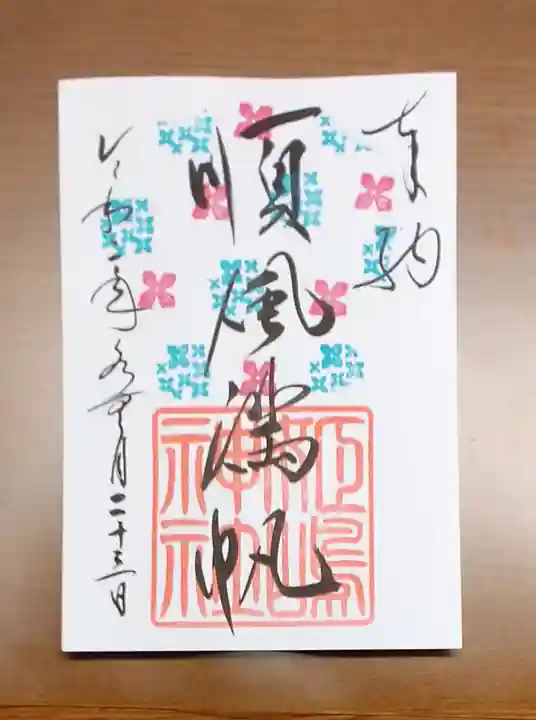 奉納
順風満帆
令和二年水無月二十三日
神社